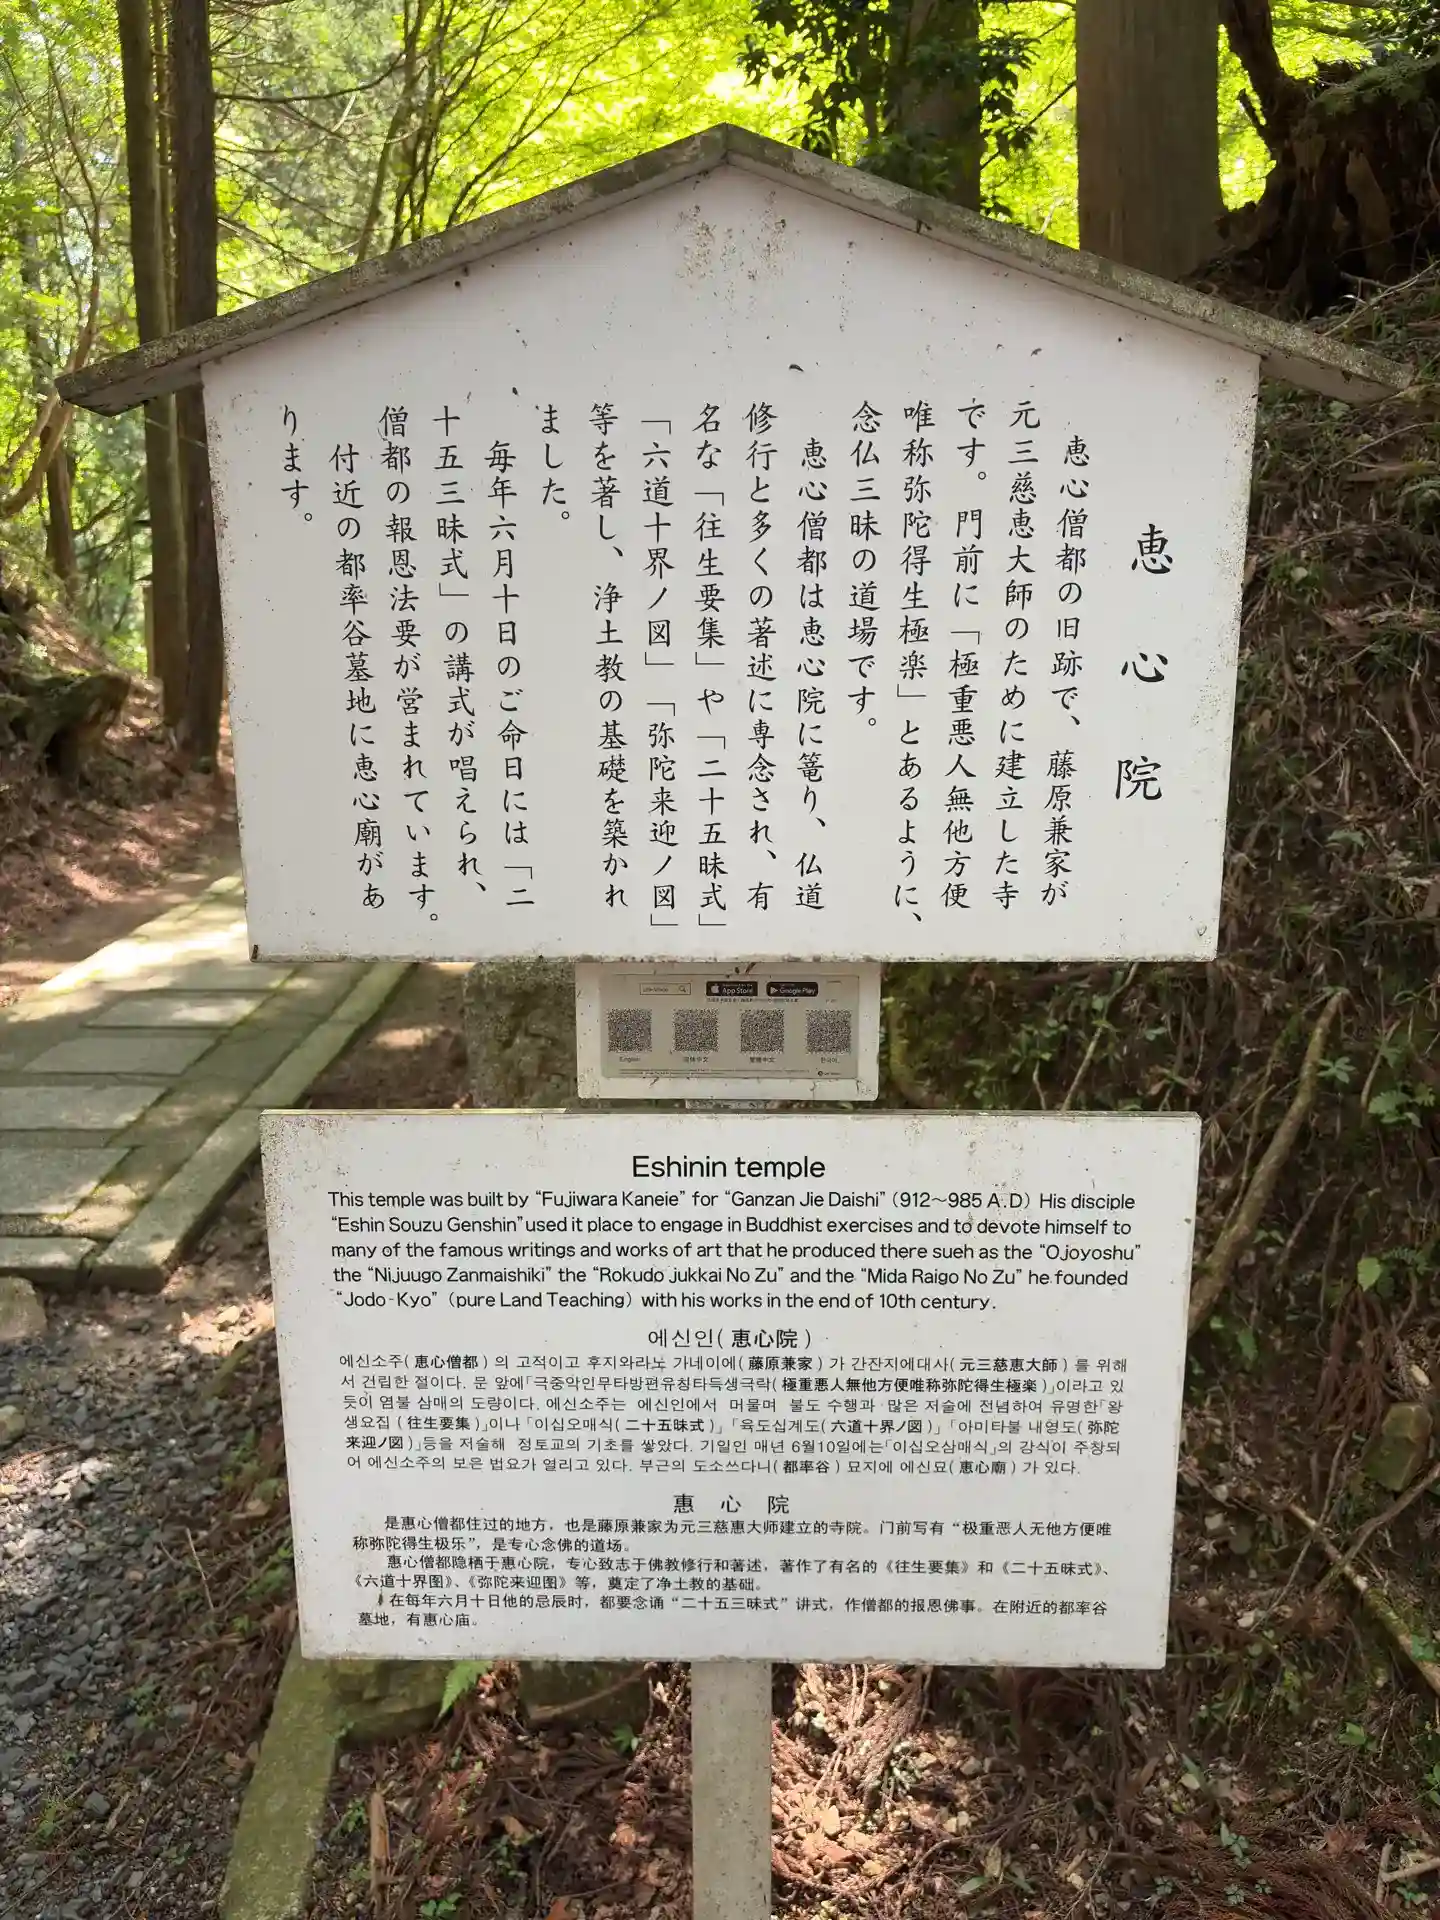 恵心院
恵心僧都の旧跡で、藤原兼家が
元三慈恵大師のために建立した寺
です。門前に「極重悪人無他方便
唯称弥陀得生極楽」とあるように、
念仏三昧の道場です。
恵心僧都は恵心院に篭り、仏道
修行と多くの著述に専念され、有
名な「往生要集」や「二十五昧式」
「六道十界ノ図」「弥陀来迎ノ図」
等を著し、浄土教の基礎を築かれ
ました。
毎年六月十日のご命日には「二
十五三昧式」の講式が唱えられ、
僧都の報恩法要が営まれています。
付近の都率谷墓地に恵心廟があ
ります。
App Store
Google Play
English
简体中文
繁體中文
한국어
Eshinin temple
This temple was built by “Fujiwara Kaneie” for “Ganzan Jie Daishi” (912～985 A.D) His disciple
“Eshin Souzu Genshin” used it place to engage in Buddhist exercises and to devote himself to
many of the famous writings and works of art that he produced there sueh as the “Ojoyoshu”
the “Nijuugo Zanmaishiki” the “Rokudo jukkai No Zu” and the “Mida Raigo No Zu” he founded
“Jodo-Kyo” (pure Land Teaching) with his works in the end of 10th century.
에신인(恵心院)
에신소주(恵心僧都)의 고적이고 후지와라노 가네이에(藤原兼家)가 간잔지에대사(元三慈恵大師)를 위해
서 건립한 절이다. 문 앞에「극중악인무타방편유칭타득생극락(極重悪人無他方便唯称弥陀得生極楽)」이라고 있
듯이 염불 삼매의 도량이다. 에신소주는 에신인에서 머물며 불도 수행과 많은 저술에 전념하여 유명한「왕
생요집(往生要集)」이나「이십오매식(二十五昧式)」「육도십계도(六道十界ノ図)」「아미타불 내영도(弥陀
来迎ノ図)」등을 저술해 정토교의 기초를 쌓았다. 기일인 매년 6월10일에는「이십오삼매식」의 강식이 주창되
어 에신소주의 보은 법요가 열리고 있다. 부근의 도소쓰다니(都率谷) 묘지에 에신묘(恵心廟)가 있다.
惠心院
是惠心僧都住过的地方，也是藤原兼家为元三慈惠大师建立的寺院。门前写有“极重恶人无他方便唯
称弥陀得生极乐”，是专心念佛的道场。
惠心僧都隐栖于惠心院，专心致志于佛教修行和著述，著作了有名的《往生要集》和《二十五昧式》、
《六道十界图》、《弥陀来迎图》等，奠定了净土教的基础。
在每年六月十日他的忌辰时，都要念诵“二十五三昧式”讲式，作僧都的报恩佛事。在附近的都率谷
墓地，有惠心庙。